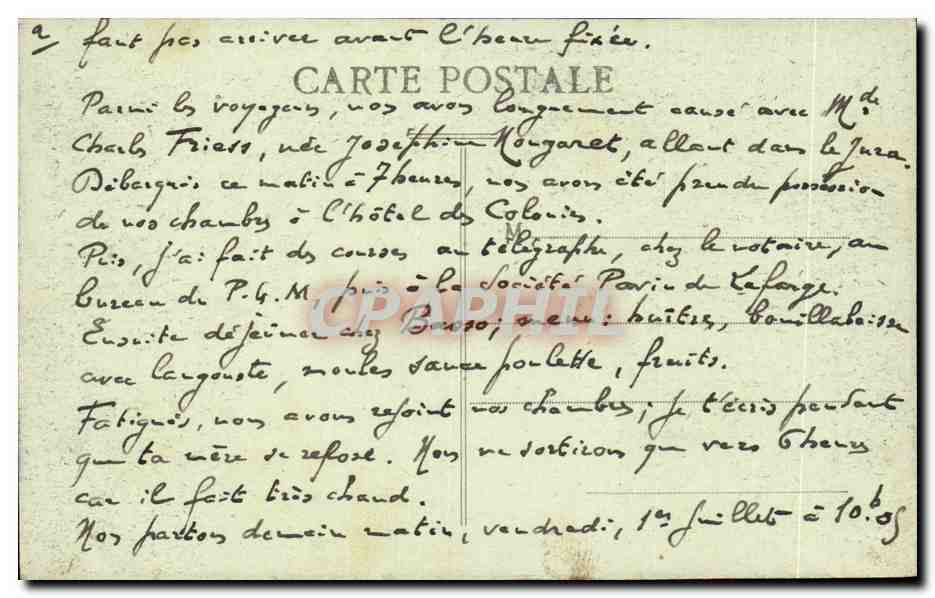 a faut pas arriver avant l'heure fixée.
CARTE POSTALE
Parmi les voyageurs, nous avons longuement causé avec Mde
Charles Friess, née Joséphine Mongaret, allant dans le Jura.
Débarqués ce matin à 7 heures, nous avons été prendre possession
de nos chambres à l'hôtel des Colonies.
M
Puis, j'ai fait des courses au télégraphe, chez le notaire, au
bureau du P.L.M, puis à la Société Pavin de Lafarge.
CPAPHIL
Ensuite déjeûner chez Basso; menu: huîtres, bouillabaisse
avec langouste, moules sauce poulette, fruits.
Fatigués, nous avons rejoint nos chambres; je t'écris pendant
que ta mère se repose. Nous ne sortirons que vers 6 heures
car il fait très chaud.
Nos partons demain matin, vendredi, 1er Juillet à 10.h05